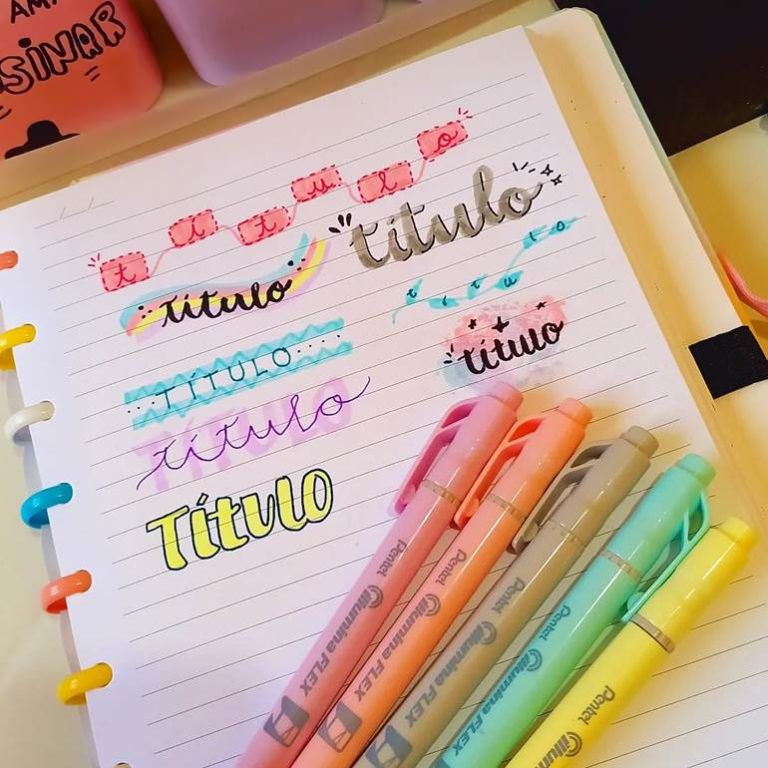 AM
SINAR
título
título
título
título
TÍTULO
título
título
TÍTULO
Título
Pentel illumina FLEX
Pentel illumina FLEX
Pentel illumina FLEX
Pentel illumina FLEX
Pentel illumina